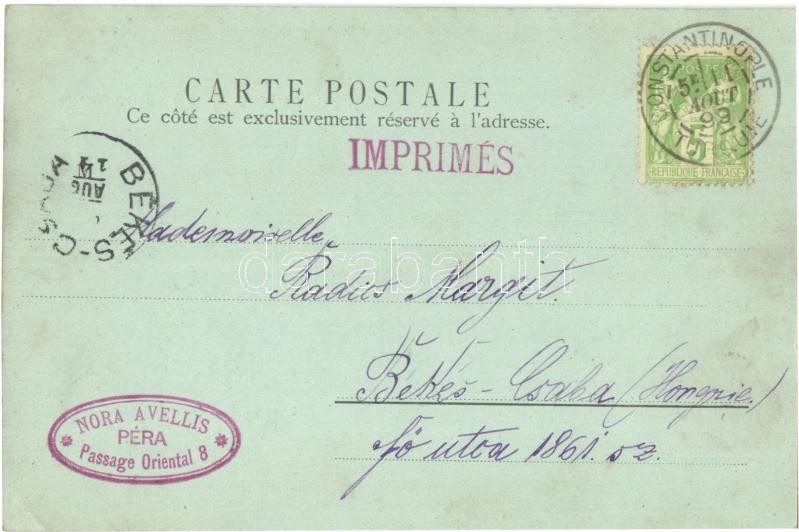 CARTE POSTALE
Ce côté est exclusivement réservé à l'adresse.
IMPRIMÉS
CONSTANTINOPLE
AOUT
99
TURQUIE
POSTE
5
REPUBLIQUE FRANÇAISE
BÉKÉS-CSABA
AUG
Mademoiselle
Radics Margit.
Békés-Csaba (Hongrie.)
fő utca 1861. sz.
NORA AVELLIS
PÉRA
Passage Oriental 8
darabanth